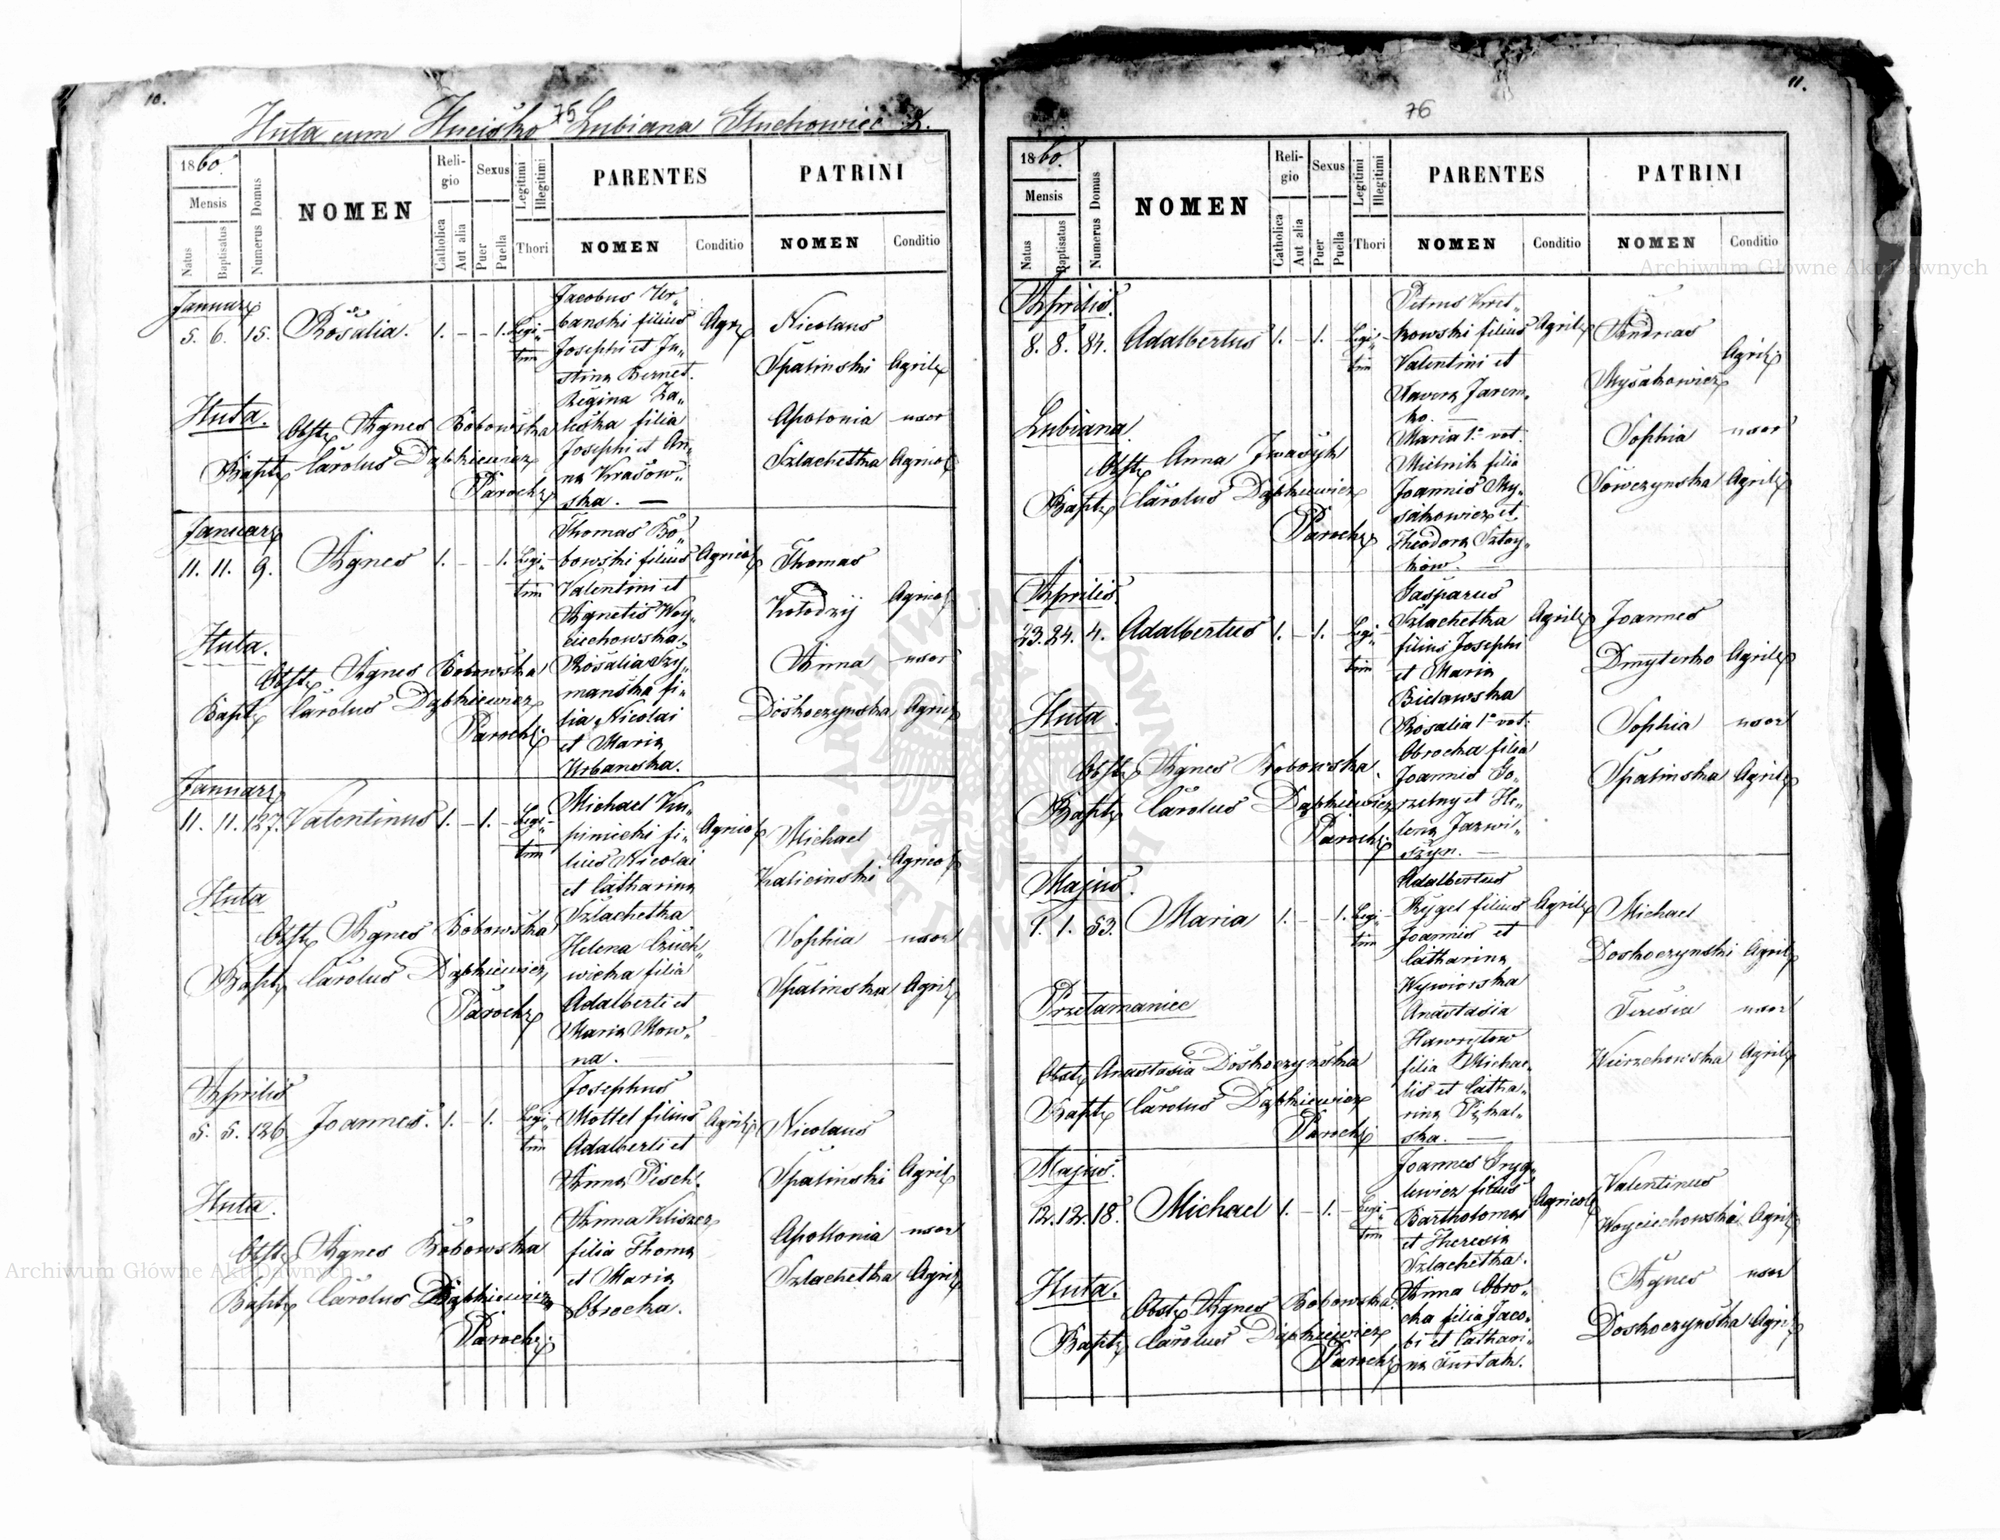 10.
75
Huta cum Hucisko Lubiana Stuchowiec 2.
1860.
Mensis
Natus
Baptisatus
Numerus Domus
NOMEN
Religio
Catholica
Aut alia
Sexus
Puer
Puella
Legitimi
Illegitimi
Thori
PARENTES
NOMEN
Conditio
PATRINI
NOMEN
Conditio
Januar
5. 6. 15. Rosalia. 1. – – 1. Legi-
tim
Jacobus Ur-
banski filius
Josephi et Ju-
stina Bernet.
Regina Za-
liska filia
Josephi et An-
na Krasow-
ska. —
Agr
Nicolaus
Spalinski Agril
Apolonia uxor
Szlachetka Agricol
Huta.
Obst Agnes Bobowska
Bapt Carolus Dąbkiewicz
Paroch
Januar
11. 11. 9. Agnes 1. – – 1. Legi-
tim
Thomas Bo-
bowski filius
Valentini et
Agnetis Woy-
ciechowska.
Rosalia Szy-
manska fi-
lia Nicolai
et Maria
Urbanska.
Agricol
Thomas
Kolodzij Agricol
Anna uxor
Doskoczynska Agric
Huta.
Obst Agnes Bobowska
Bapt Carolus Dąbkiewicz
Paroch
Januar
11. 11. 127. Valentinus 1. – 1. – Legi-
tim
Michael Kru-
pinicki fi-
lius Nicolai
et Catharina
Szlachetka
Helena Czuch-
wicka filia
Adalberti et
Maria Mow-
na. —
Agricol
Michael
Kalicinski Agricol
Sophia uxor
Spalinska Agril
Huta
Obst Agnes Bobowska
Bapt Carolus Dąbkiewicz
Paroch
Aprilis
5. 5. 126 Joannes. 1. – 1. Legi-
tim
Josephus
Mottel filius
Adalberti et
Anna Pisch.
Anna Kliszcz
filia Thoma
et Maria
Obrocka.
Agril
Nicolaus
Spalinski Agril
Apollonia uxor
Szlachetka Agric
Huta.
Obst Agnes Bobowska
Bapt Carolus Dąbkiewicz
Paroch
11.
76
1860.
Mensis
Natus
Baptisatus
Numerus Domus
NOMEN
Religio
Catholica
Aut alia
Sexus
Puer
Puella
Legitimi
Illegitimi
Thori
PARENTES
NOMEN
Conditio
PATRINI
NOMEN
Conditio
Aprilis.
8. 8. 84. Adalbertus 1. – 1. Legi-
tim
Petrus Kret-
kowski filius
Valentini et
Xavera Jarem-
ko.
Maria 1º vot.
Mielnik filia
Joannis My-
sakowicz et
Theodora Sztoy-
kow. —
Agril
Andreas
Mysakowicz Agril
Sophia uxor
Sowczynska Agril
Lubiana.
Obst Anna Iwasyk
Bapt Carolus Dąbkiewicz
Paroch
Aprilis.
23. 24. 4. Adalbertus 1. – 1. – Legi-
tim
Gasparus
Szlachetka
filius Josephi
et Maria
Bielawska
Rosalia 1º vot.
Obrocka filia
Joannis Go-
rzelny et He-
lena Jazwil-
szyn. —
Agril
Joannes
Dmyterko Agril
Sophia uxor
Spalinska Agril
Huta
Obst Agnes Bobowska.
Bapt Carolus Dąbkiewicz
Paroch
Majus.
1. 1. 53. Maria 1. – – 1. Legi-
tim
Adalbertus
Rygel filius
Joannis et
Catharina
Wywiorska
Anastasia
Hawrylow
filia Michae-
lis et Catha-
rina Pękal-
ska. —
Agril
Michael
Doskoczynski Agril
Teresia uxor
Wierzchowska Agril
Przelamaniec
Obst Anastasia Doskoczynska
Bapt Carolus Dąbkiewicz
Paroch
Majus.
12. 12. 18. Michael 1. – 1. – Legi-
tim
Joannes Gryg-
lewicz filius
Bartholomai
et Theresia
Szlachetka.
Anna Obro-
cka filia Jaco-
bi et Cathari-
na Furtak.
Agricol
Valentinus
Woyciechowski Agril
Agnes uxor
Doskoczynska Agril
Huta.
Obst Agnes Bobowska.
Bapt Carolus Dąbkiewicz
Paroch
Archiwum Główne Akt Dawnych
Archiwum Główne Akt Dawnych